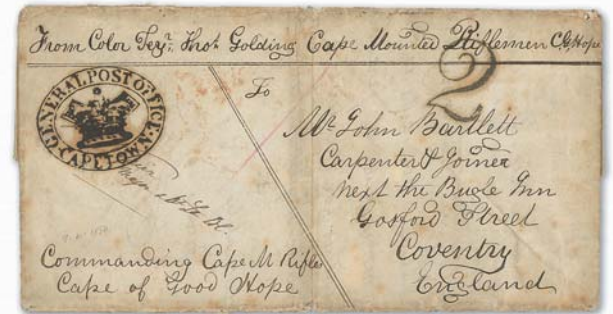 From Color Serjt. Thos Golding Cape Mounted Riflemen C.G.Hope
GENERAL POST OFFICE
CAPE TOWN
2
To
Mr John Bartlett
Carpenter & Joiner
next the Bugle Inn
Gosford Street
Coventry
England
Commanding Cape M Rifle
Cape of Good Hope